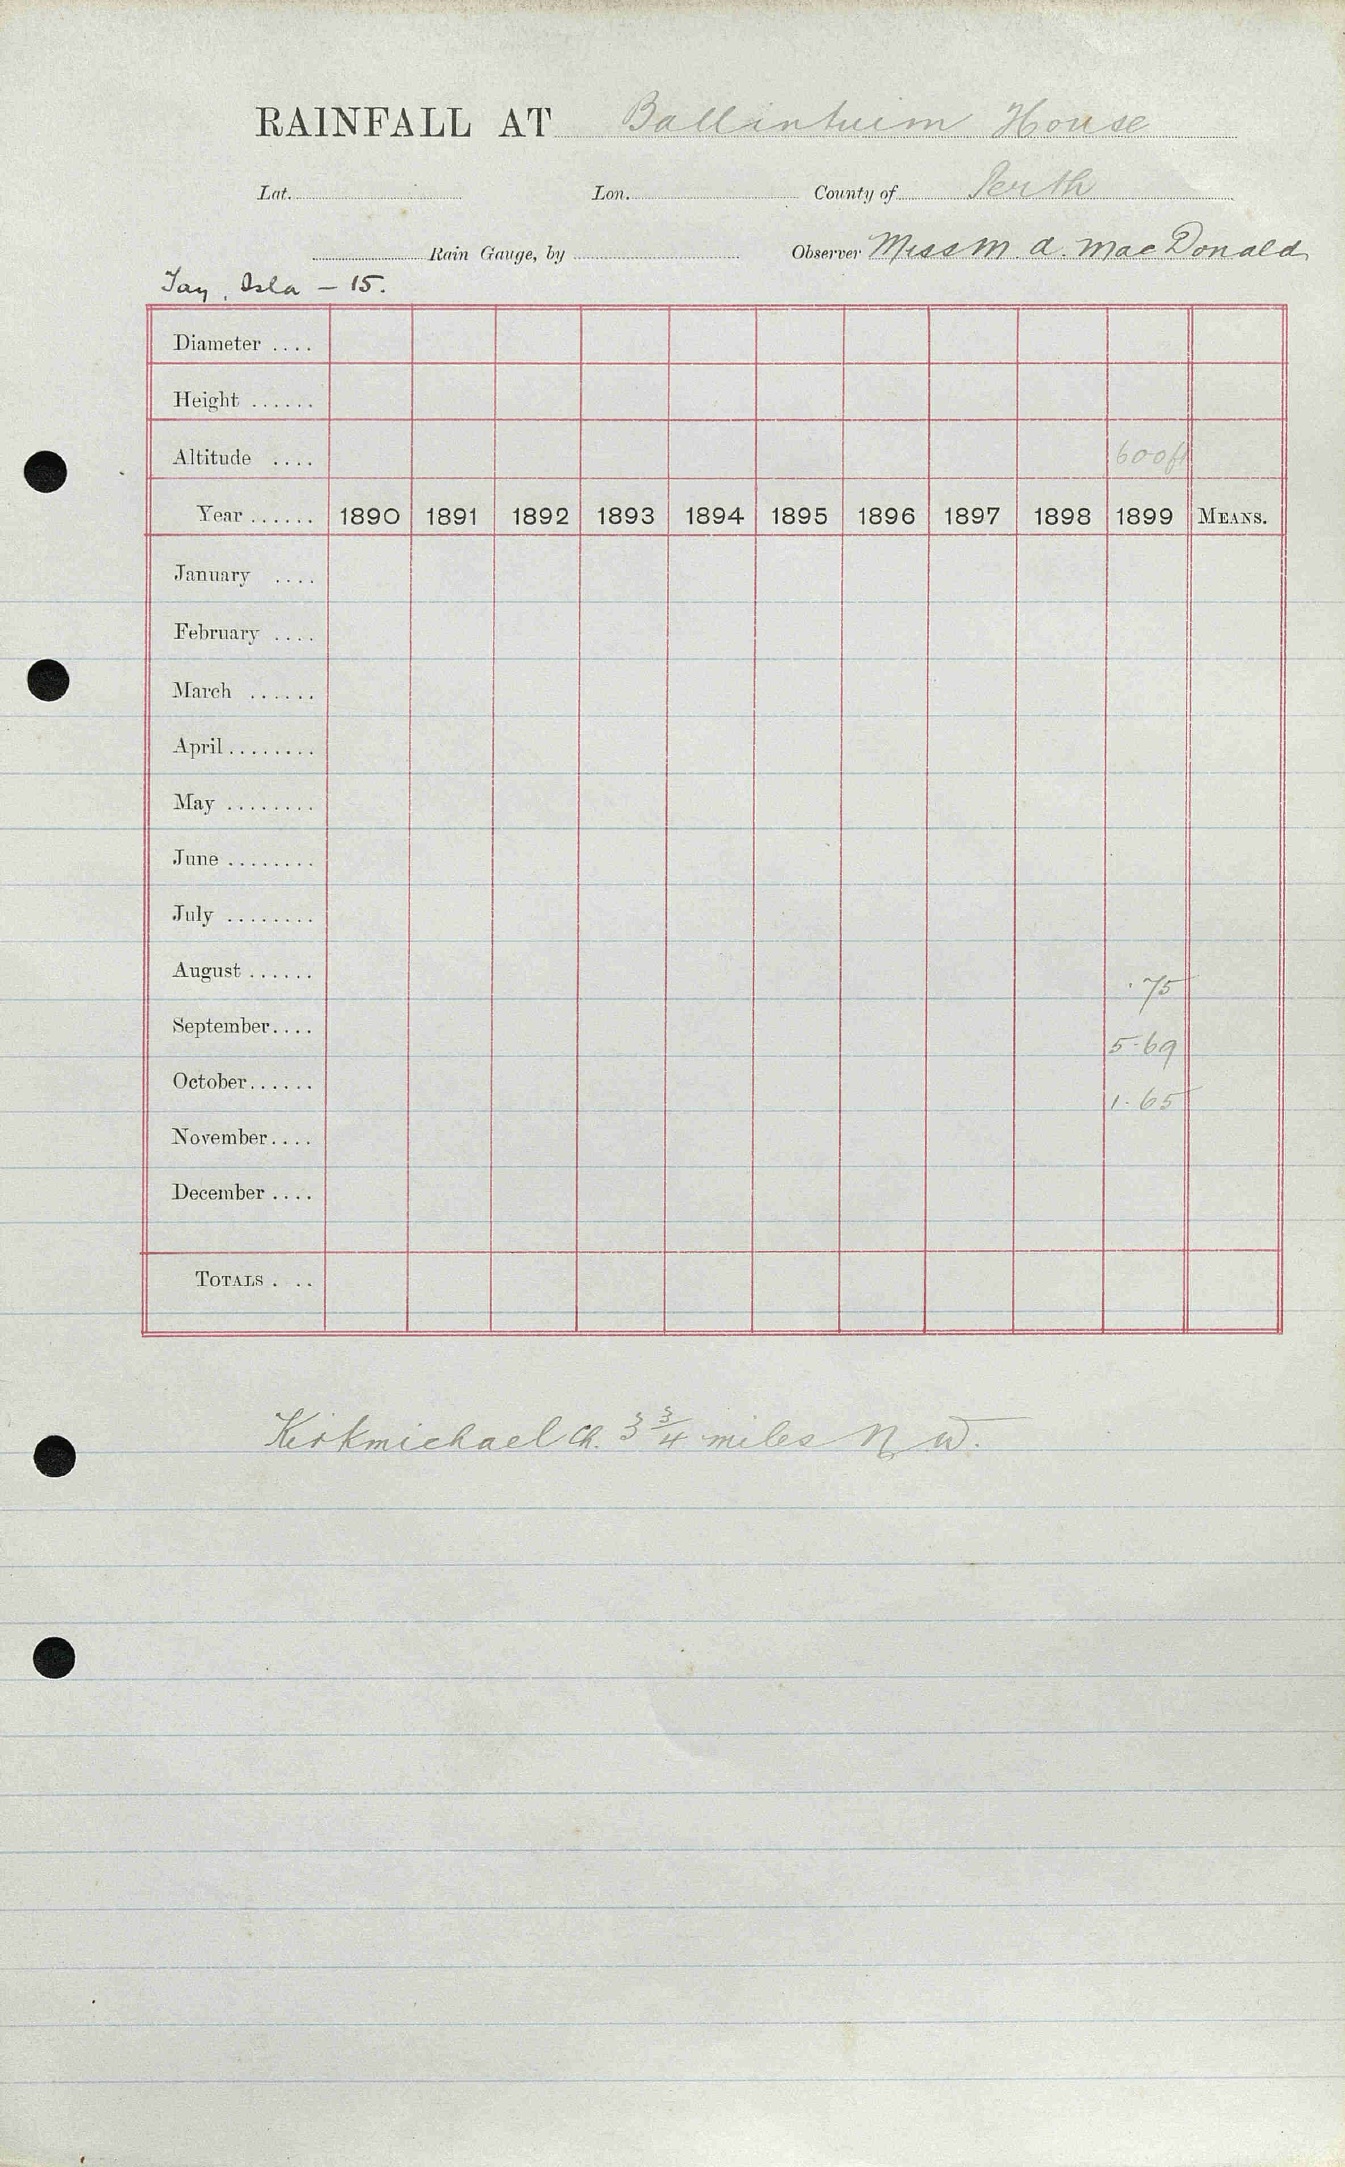 RAINFALL AT Ballintuim House
Lat. Lon. County of Perth
Rain Gauge, by Observer Miss M. A. MacDonald
Tay, Isla — 15.
Diameter ....
Height ......
Altitude .... 600ft
Year ...... 1890 1891 1892 1893 1894 1895 1896 1897 1898 1899 MEANS.
January ....
February ....
March ......
April ........
May ........
June ........
July ........
August ...... .75
September .... 5.69
October ...... 1.65
November ....
December ....
TOTALS . ..
Kirkmichael Ch. 3 3/4 miles N.W.